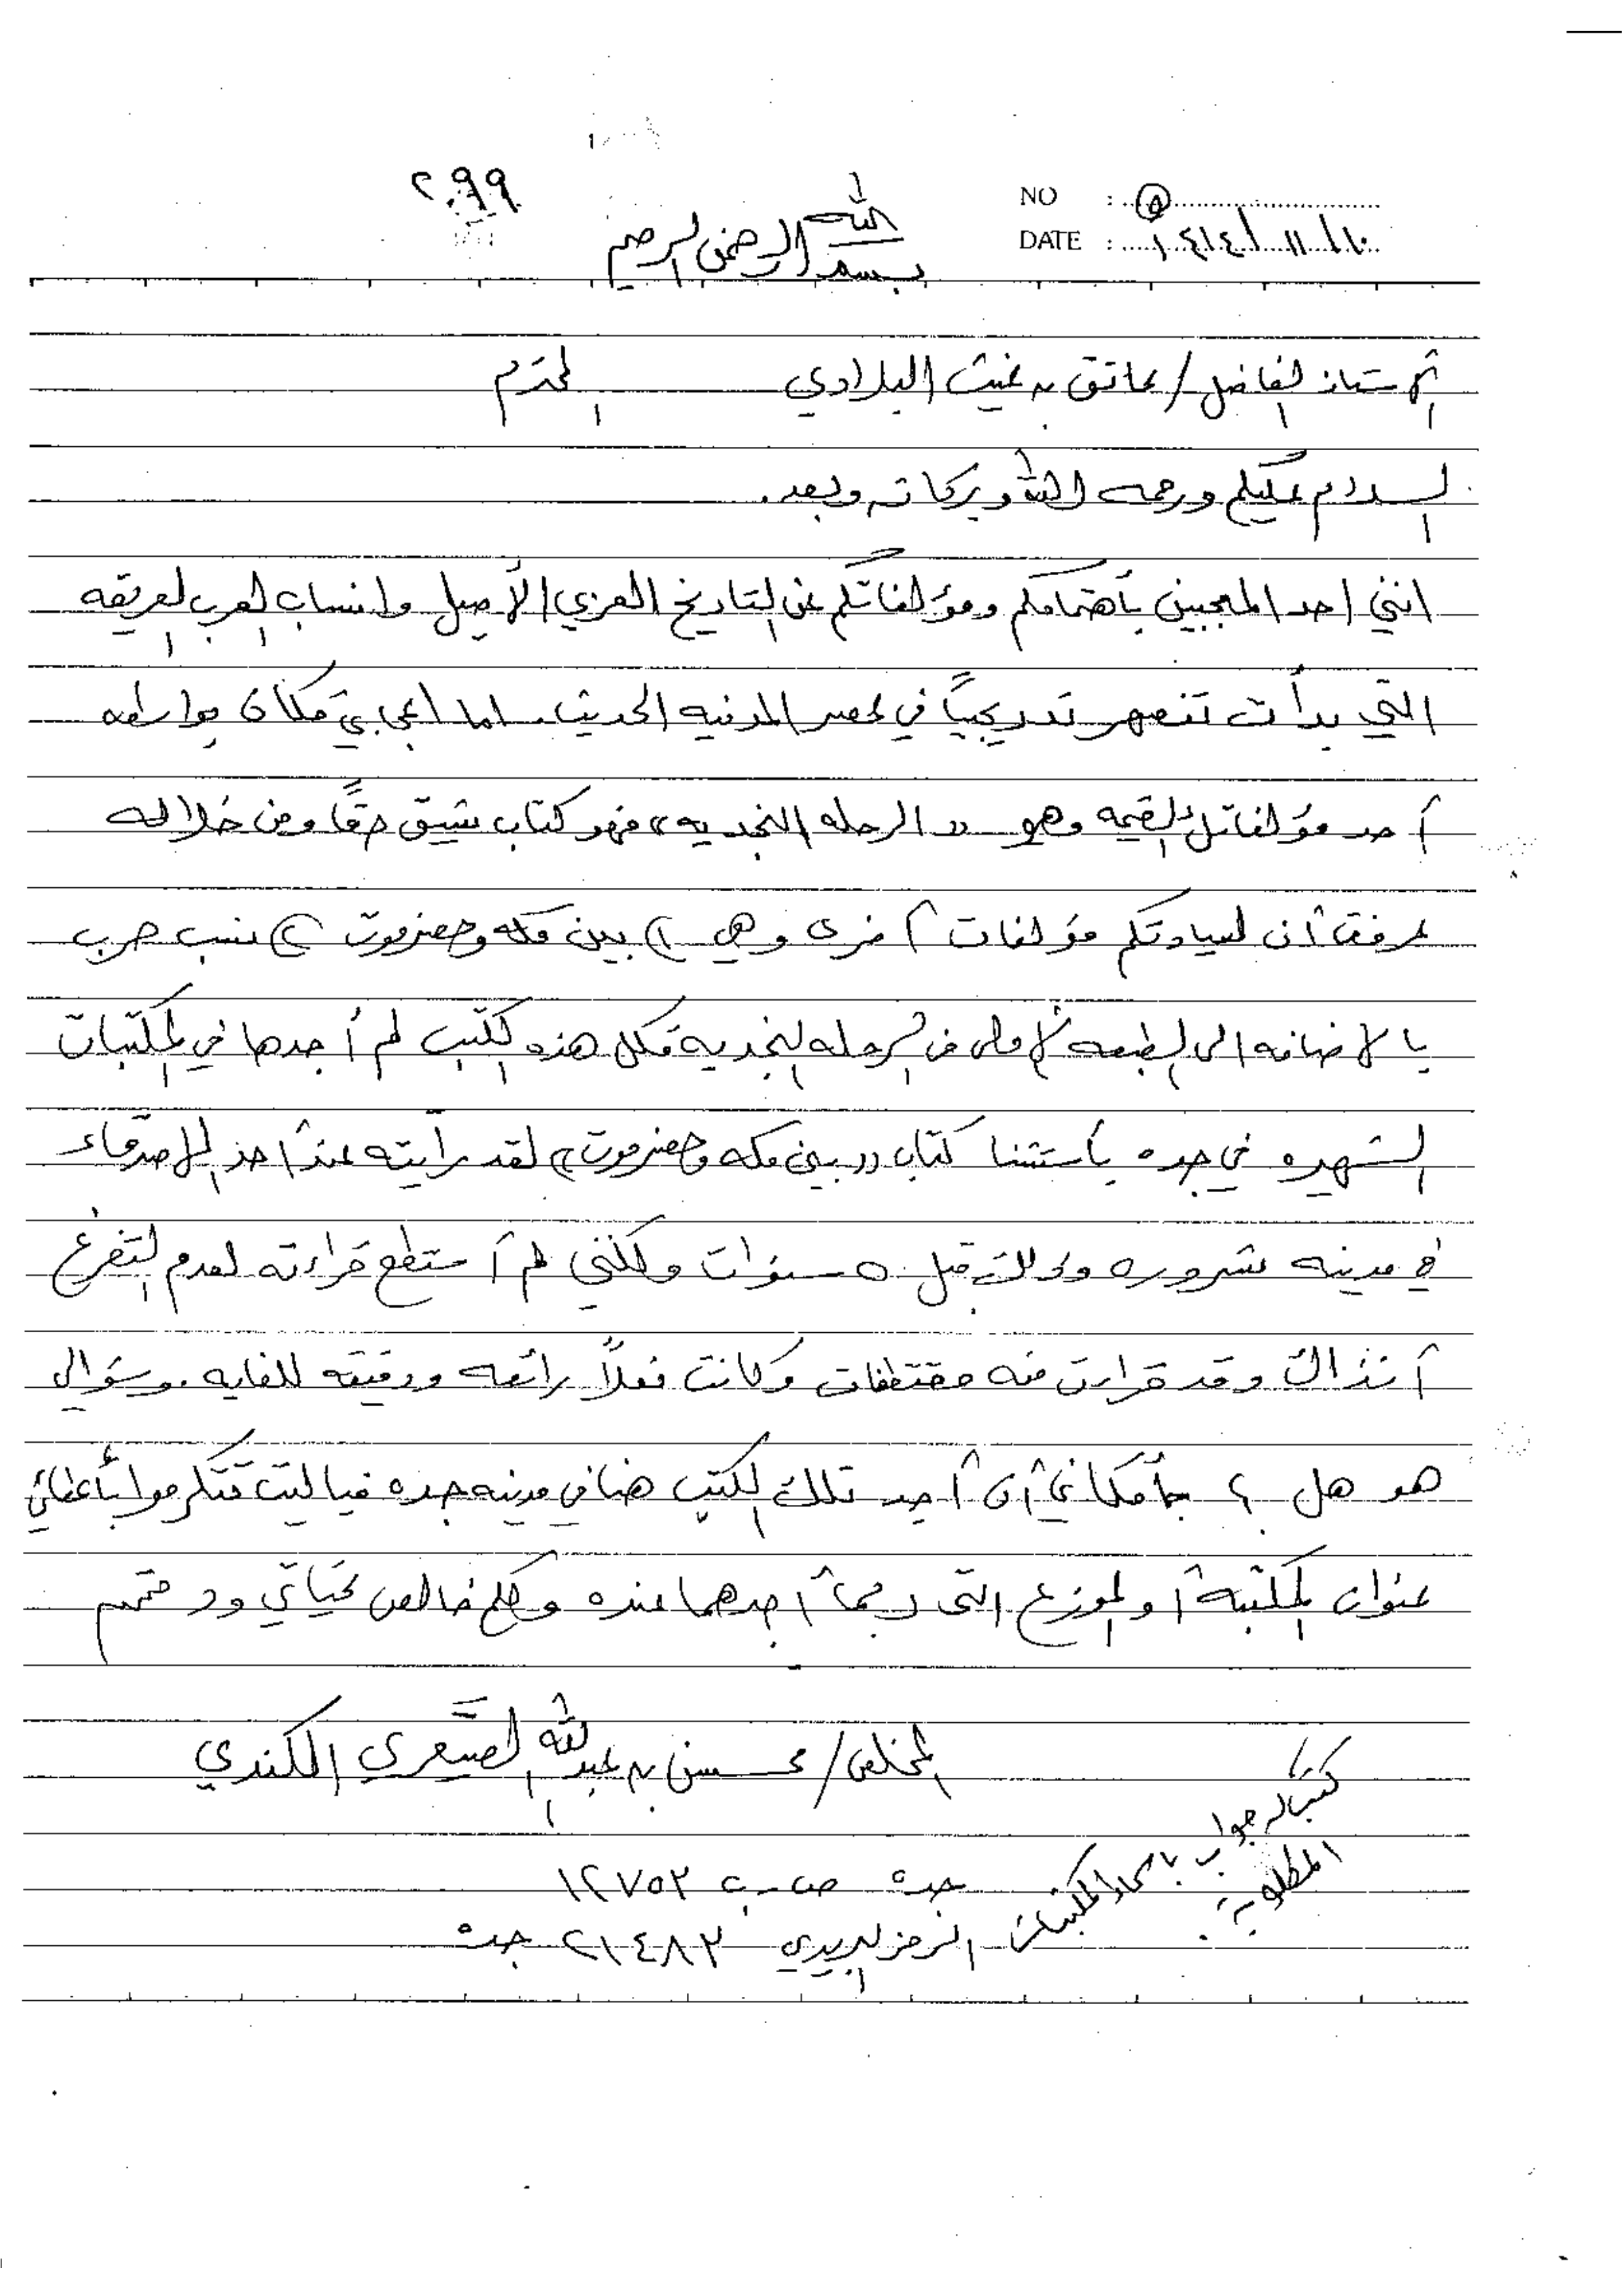 ٢٠٩٩
NO : ٥
DATE : ١٤١٤/١١/١٠
بسم الله الرحمن الرحيم
الأستاذ الفاضل / عاتق بن غيث البلادي المحترم
السلام عليكم ورحمه الله وبركاته وبعد.
انني احد المعجبين بأهتمامكم ومؤلفاتكم عن التاريخ العربي الأصيل وانساب العرب العريقه
التي بدأت تنصهر تدريجياً في عصر المدنيه الحديث. اما اعجابي فكان بواسطه
أحد مؤلفاتك القيمه وهو « الرحله النجديه » فهو كتاب شيق حقاً ومن خلاله
عرفت أن لسيادتكم مؤلفات أخرى وهي ١) بين مكه وحضرموت ٢) نسب حرب
بالاضافه الى الطبعه الأولى من الرحله النجدية فكل هذه الكتب لم أجدها في المكتبات
الشهيره في جده بأستثنا كتاب « بين مكه وحضرموت » لقد رأيته عند أحد الاصدقاء
في مدينه شروره وذلك قبل ٥ سنوات ولكنني لم أستطع قراءته لعدم التفرغ
آنذاك وقد قرات منه مقتطفات وكانت فعلاً رائعه ودقيقه للغايه. وسؤالي
هو هل ؟ بأمكاني أن أجد تلك الكتب هنا في مدينه جده فياليت تتكرموا بأعطائي
عنوان المكتبة أو الموزع التي ربما أجدهما عنده ولكم خالص تحياتي ودمتم
المخلص / محسن بن عبدالله الصيعري الكندي
جده ص.ب ١٢٧٥٢
الرمز البريدي ٢١٤٨٢ جده
كتبنا له جواب باسماء المكتبات
المطلوبة.